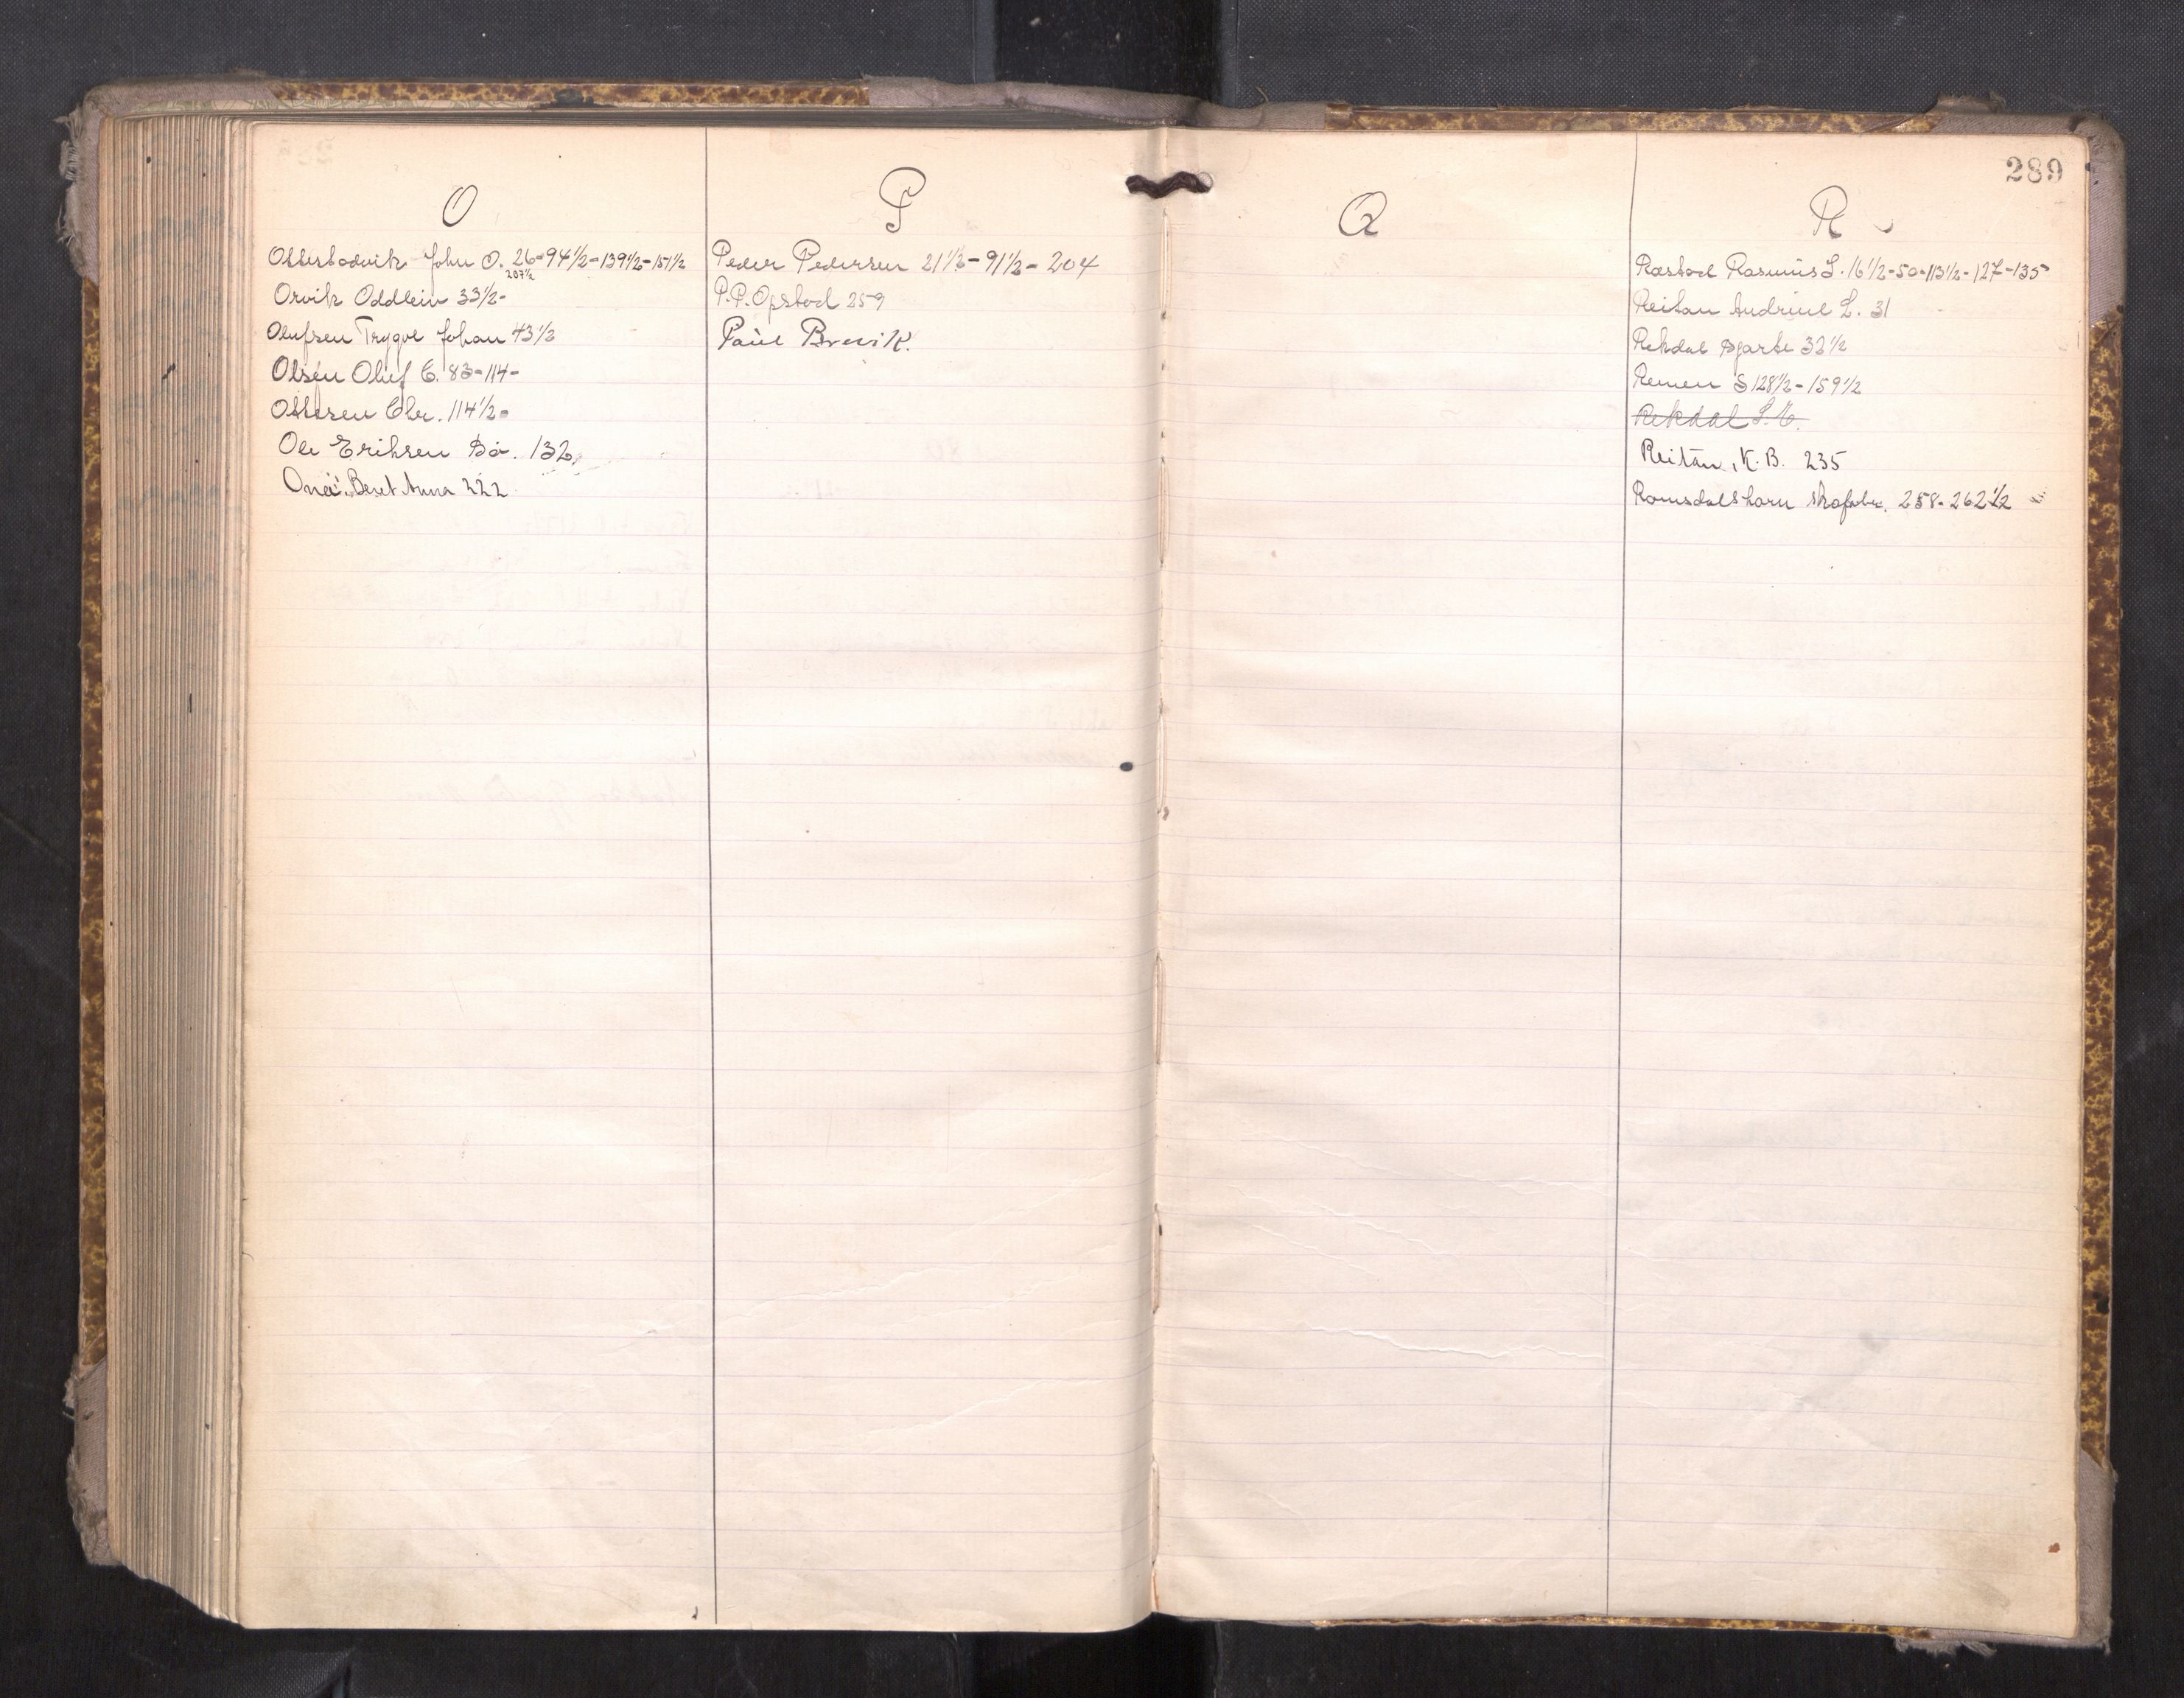 289
O
Otterbodvik John O. 26-94½-139½-151½
207½
Orvik Oddlein 33½-
Olufsen Trygve Johan 43½
Olsen Oluf E. 83-114-
Ottesen Chr. 114½-
Ole Eriksen Bø. 132
Beret Anna 222
P
Peder Pedersen 21½-91½-204
P.P. Opstad 259
Paul Brevik.
Q
R
Røstad Rasmus L. 16½-50-113½-127-135
Reitan Andrine L. 31
Rekdal Bjarte 33½
Remen S 128½-159½
Rekdal
Reitan, K. B. 235
Romsdalshorn 258-262½